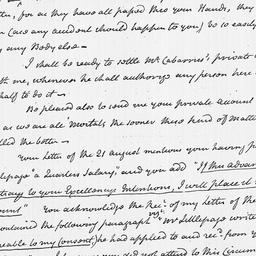 for as they have all passed thro your Hands, they
(case any accident should happen to you) be so easily
any Body else.—
I shall be ready to settle Mr Cabarrus's private
me, whenever he shall authorize any person here
half to do it—
Be pleased also to send me your private Account
as we are all Mortals, the sooner these kind of Matte
lled the better—
Your Letter of the 21 august mentions your having
lepage's 2 Quarters Salary, and you add "If this advan
trary to your Excellency's Intentions, I will place it
ount" You acknowledge the Rec.t of my Letter of the
contained the following paragraph "Mr Littlepage writes
reable to my consent, he had applied to and rec.d from
did not attend to this Circum